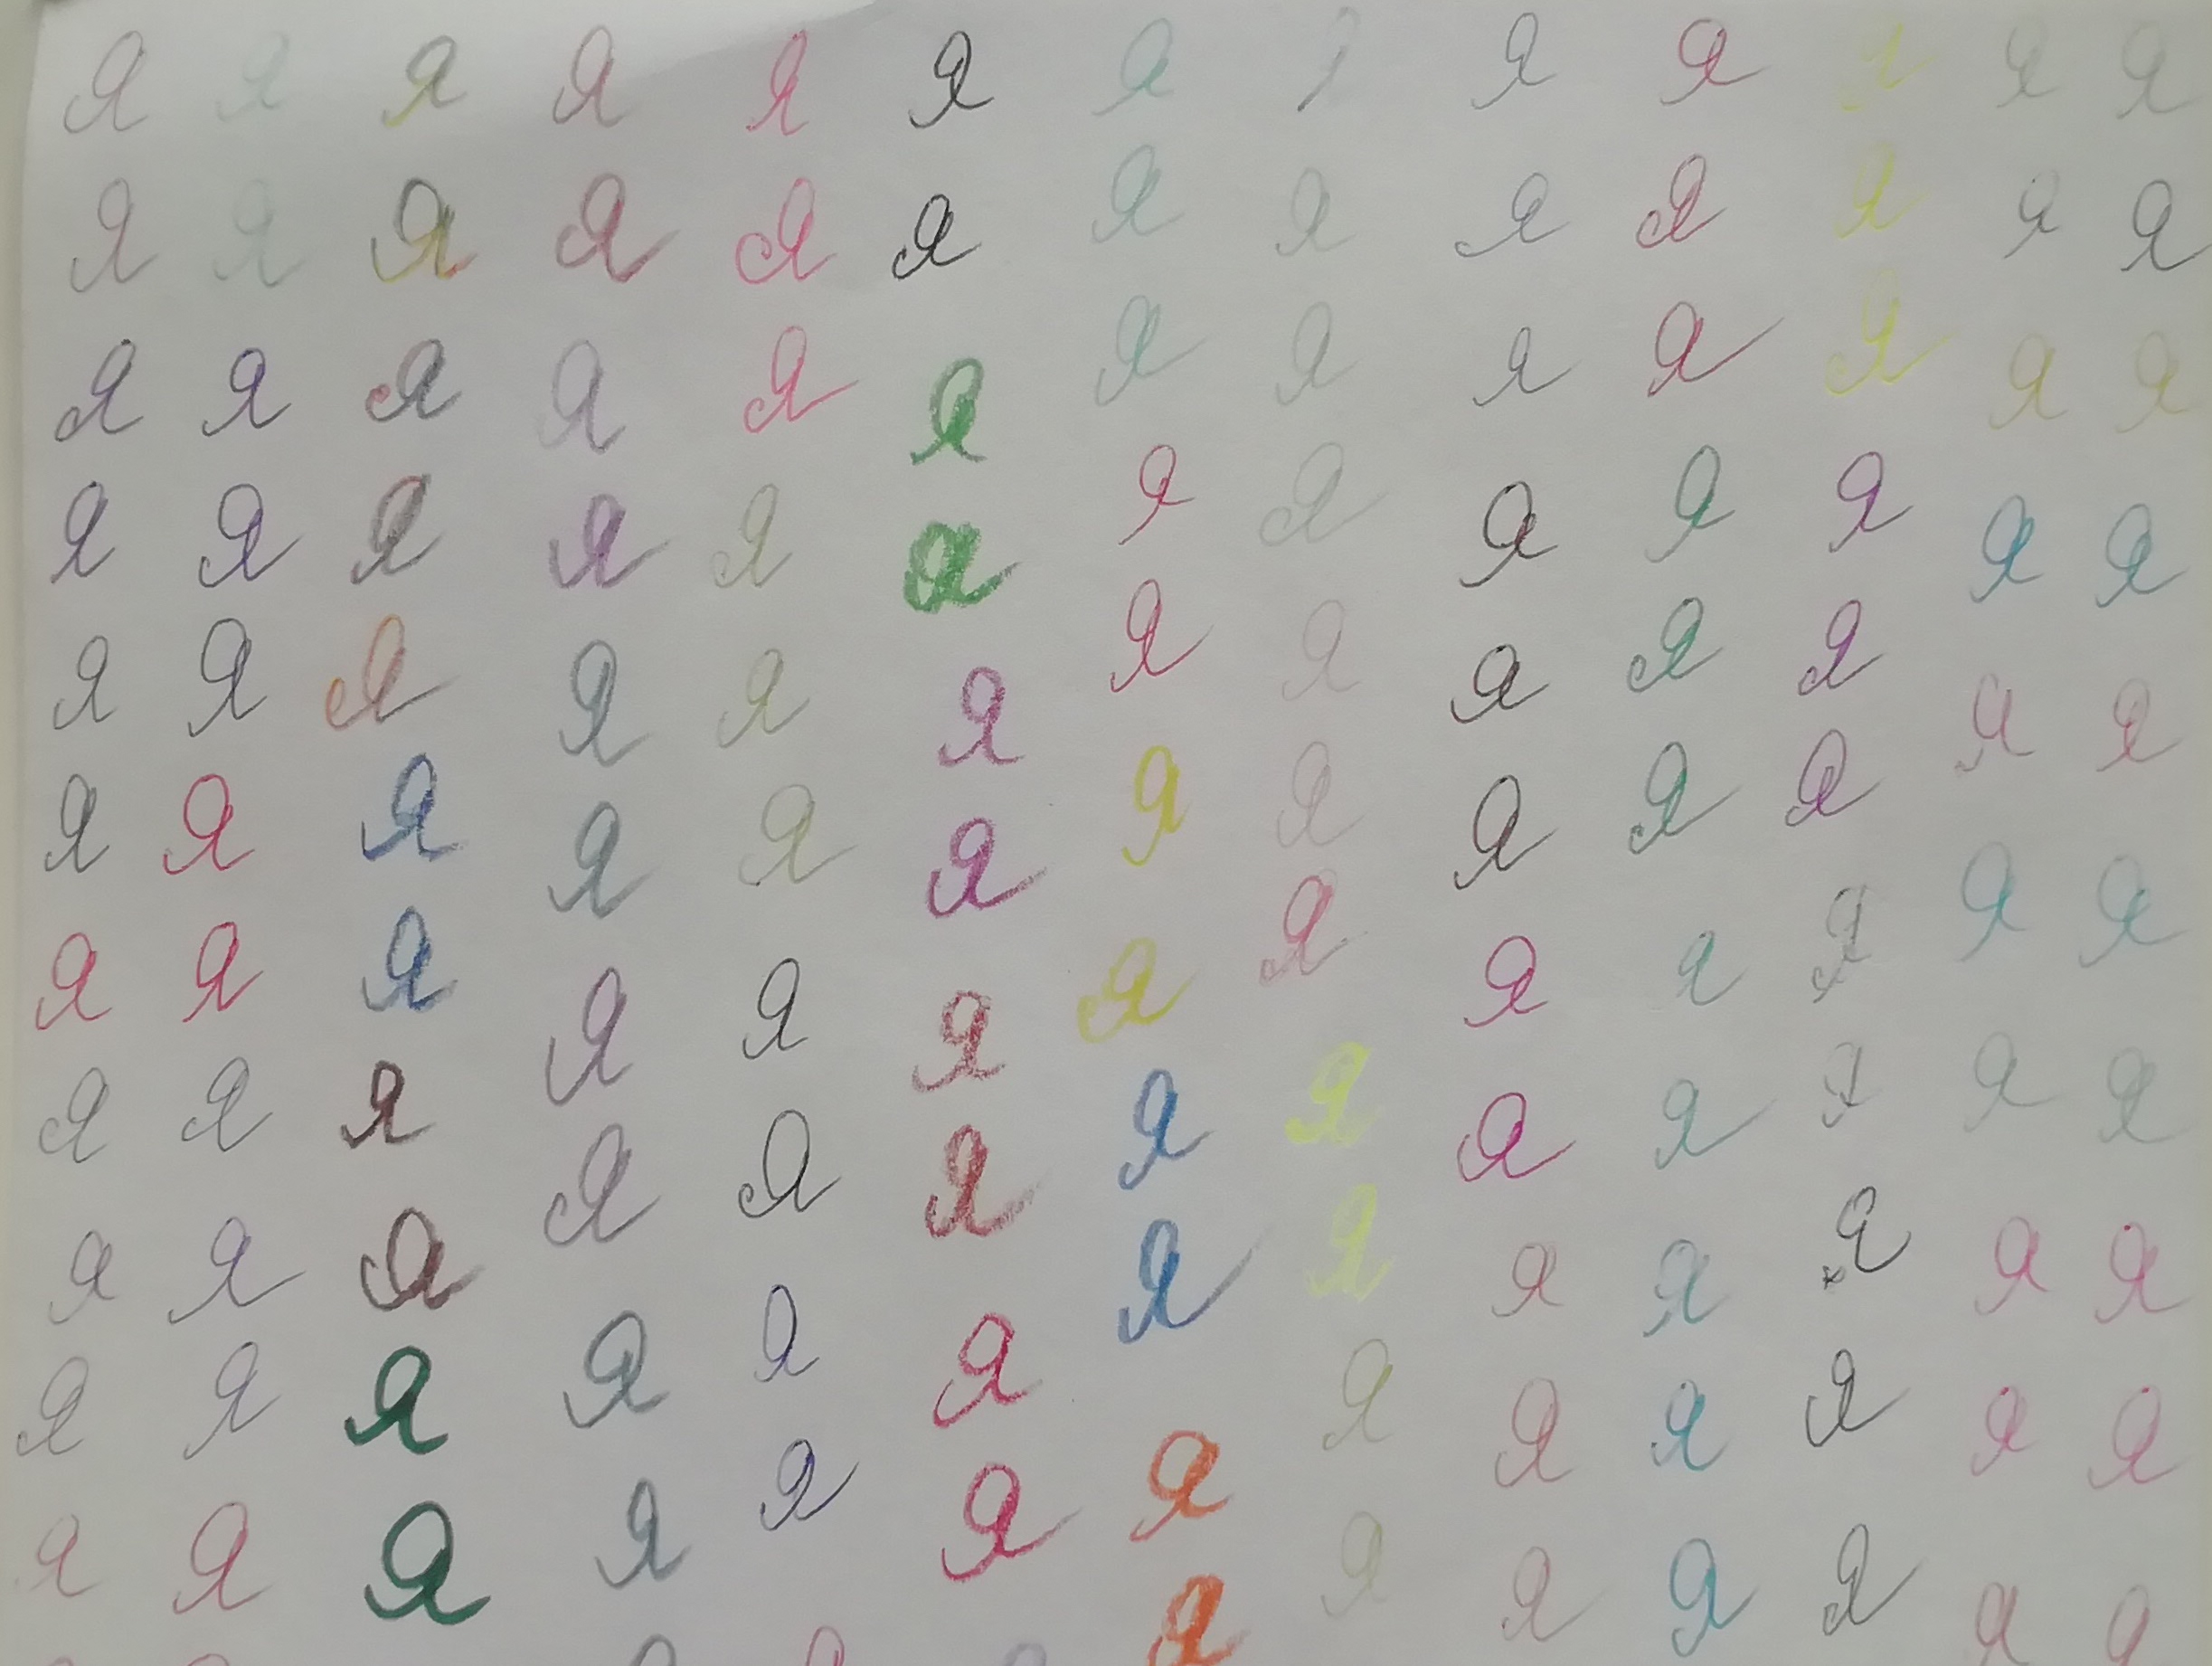 Я Я Я Я Я Я Я Я Я Я Я Я Я
Я Я Я Я Я Я Я Я Я Я Я Я Я
Я Я Я Я Я Я Я Я Я Я Я Я Я
Я Я Я Я Я Я Я Я Я Я Я Я Я
Я Я Я Я Я Я Я Я Я Я Я Я Я
Я Я Я Я Я Я Я Я Я Я Я Я Я
Я Я Я Я Я Я Я Я Я Я Я Я Я
Я Я Я Я Я Я Я Я Я Я Я Я Я
Я Я Я Я Я Я Я Я Я Я Я Я Я
Я Я Я Я Я Я Я Я Я Я Я Я Я
Я Я Я Я Я Я Я Я